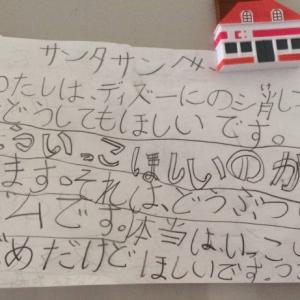 サンタサンへ
わたしは、ディズニーにの消し
どうしてもほしいです。
もういっこほしいのが
ます。それは、どうぶつ
ムです。本当は、いっこし
だめだけどほしいです。つ